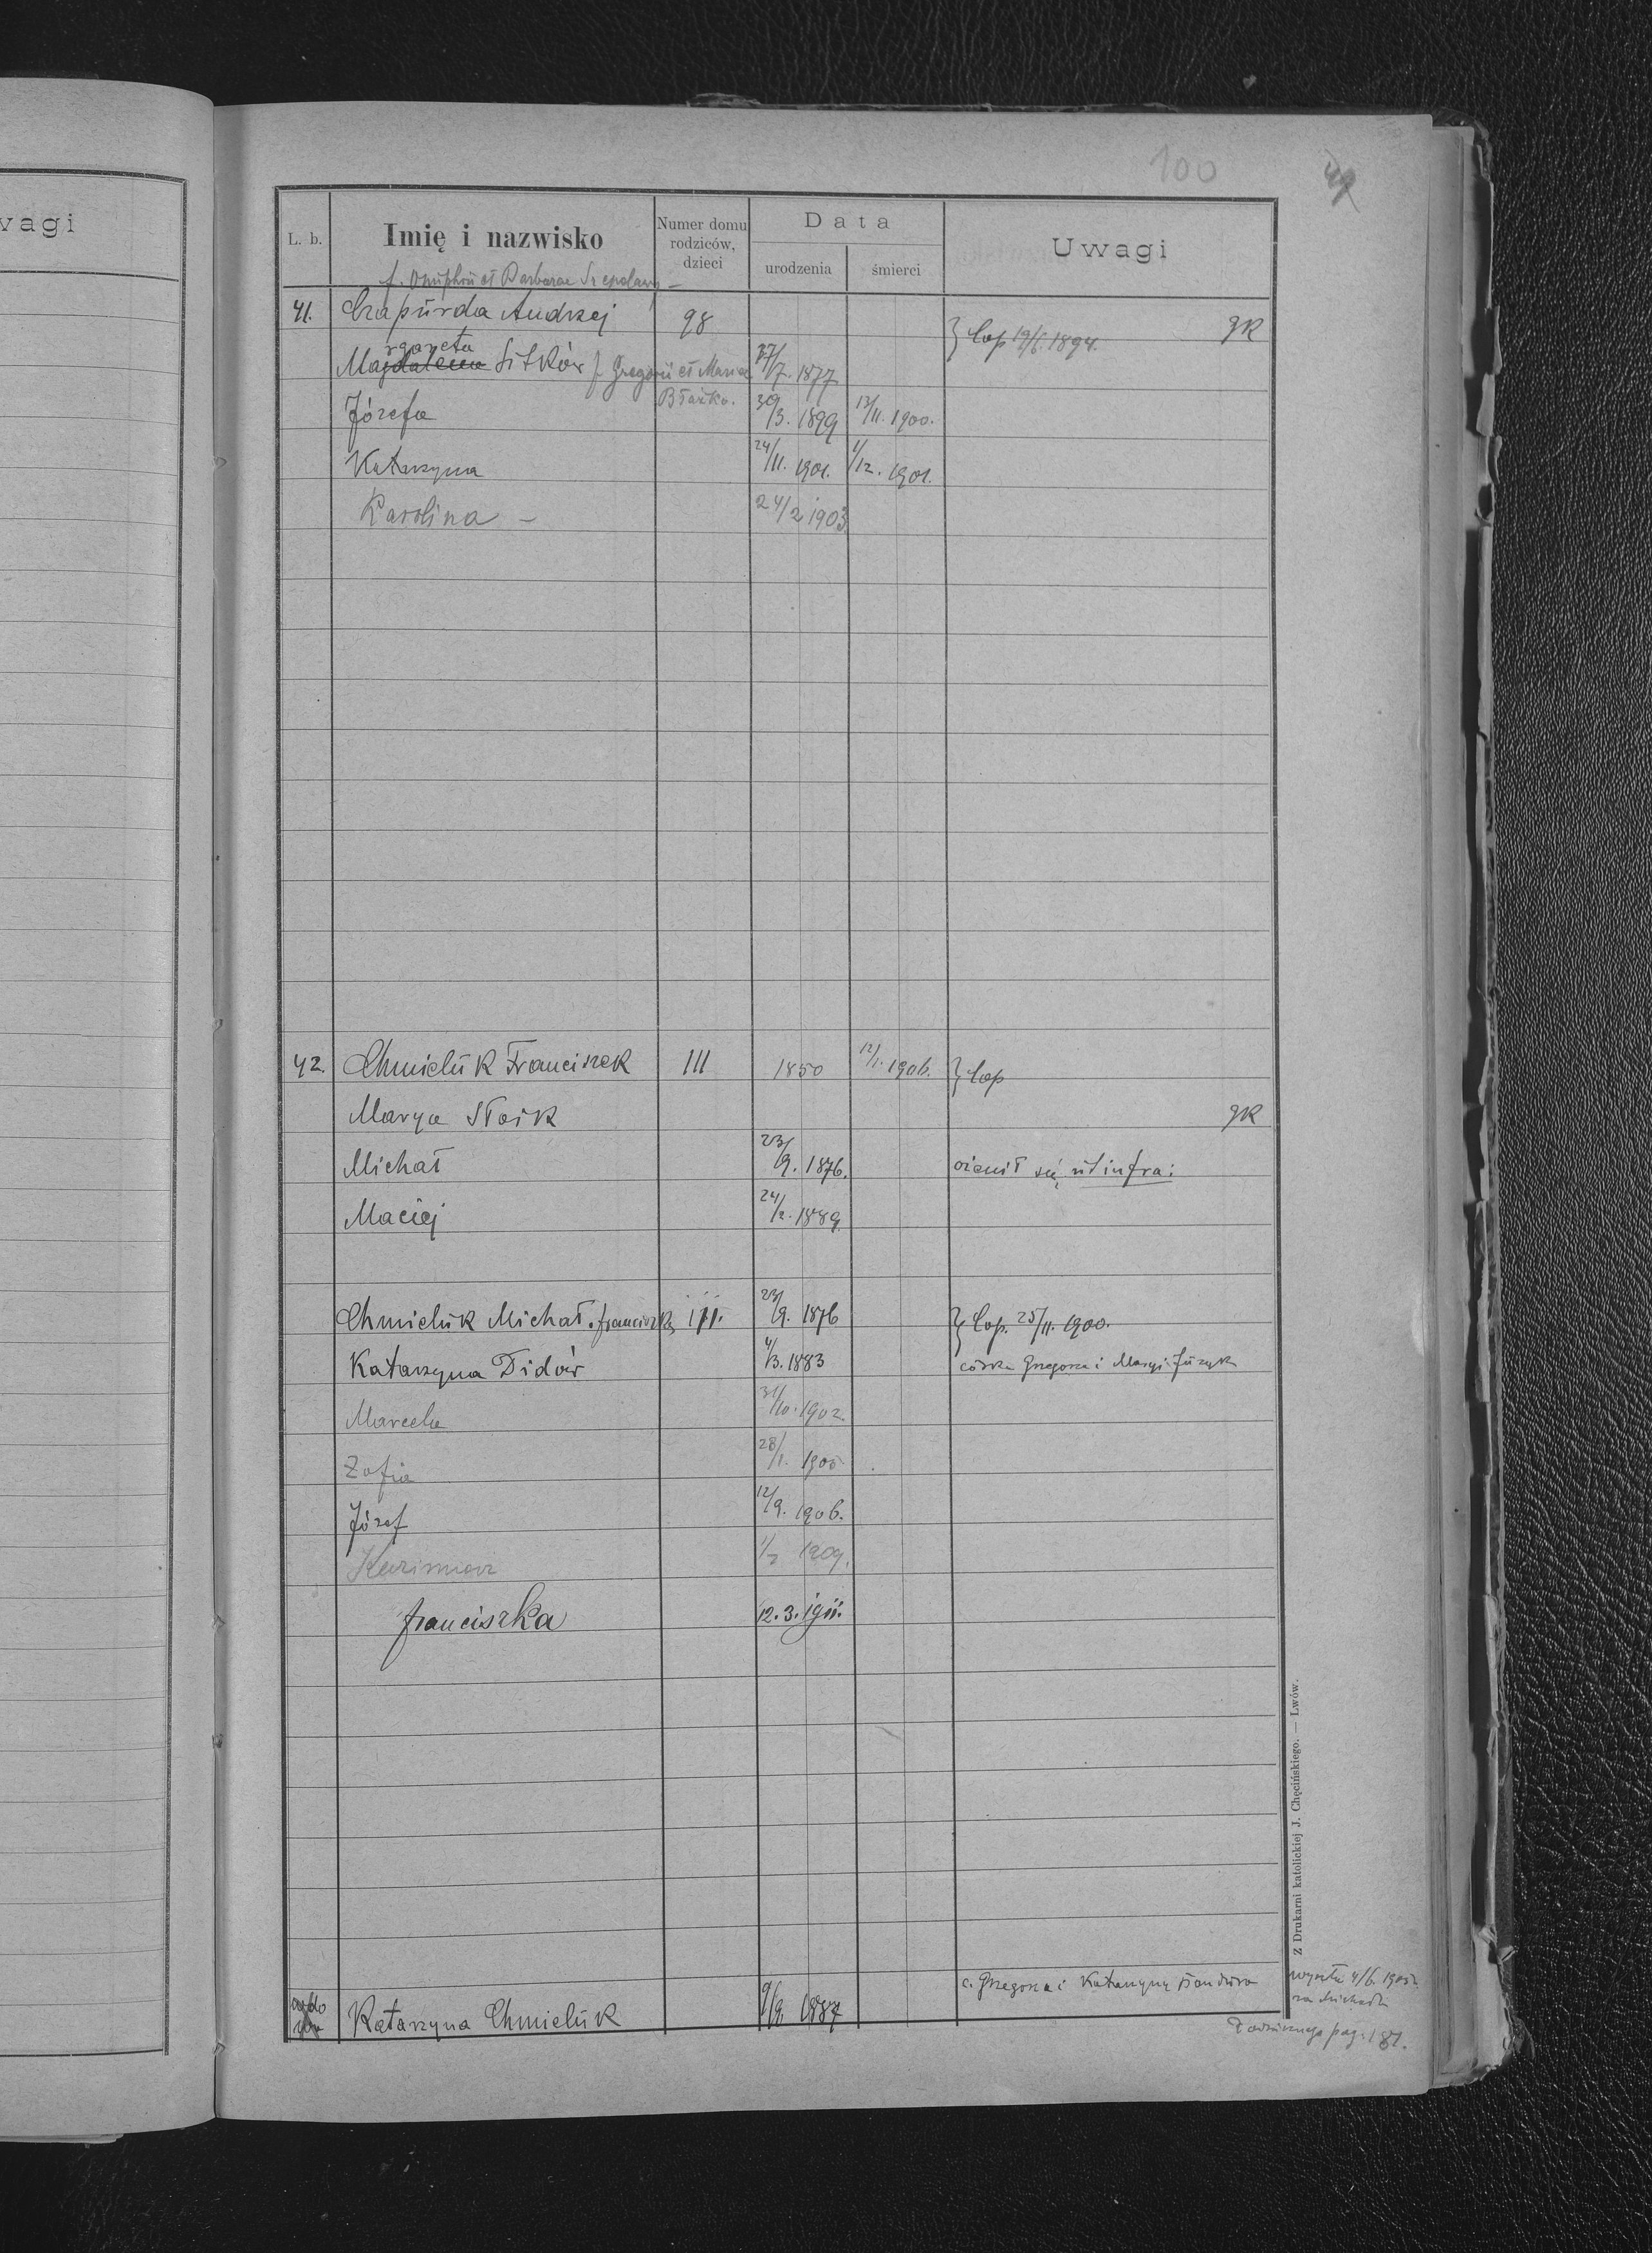 wagi
100
L. b.
Imię i nazwisko
Numer domu rodziców, dzieci
Data
urodzenia
śmierci
Uwagi
f. Onuphrii et Barbarae
41. Czapurda Andrzej 98 } Cop 19/6. 1894. gR
rgareta
Magdalena Sitków f. Gregorii et Mariae 27/7. 1877
Błażko.
Józefa 30/3. 1899 13/11. 1900.
Katarzyna 24/11. 1901. 1/12. 1901.
Karolina – 24/2 1903
42. Chmieluk Franciszek 111 1850 12/1. 1906. } Cop
Marya Słoik gR
Michał 23/9. 1876. ożenił się ut infra:
Maciej 24/2. 1889
Chmieluk Michał. franciszka 111. 23/9. 1876 } Cop. 25/11. 1900.
Katarzyna Didów 4/3. 1883 córka Grzegorza i Maryi
Marcela 31/10. 1902.
Zofia 28/1. 1905
Józef 12/9. 1906.
Kazimierz 1/3 1909.
franciszka 12. 3. 1911.
c. Grzegorza i Katarzyny
wyszła 4/6. 1905
za Michała
Katarzyna Chmieluk 9/9. 1887
pag. 181.
Z Drukarni katolickiej J. Chęcińskiego. — Lwów.